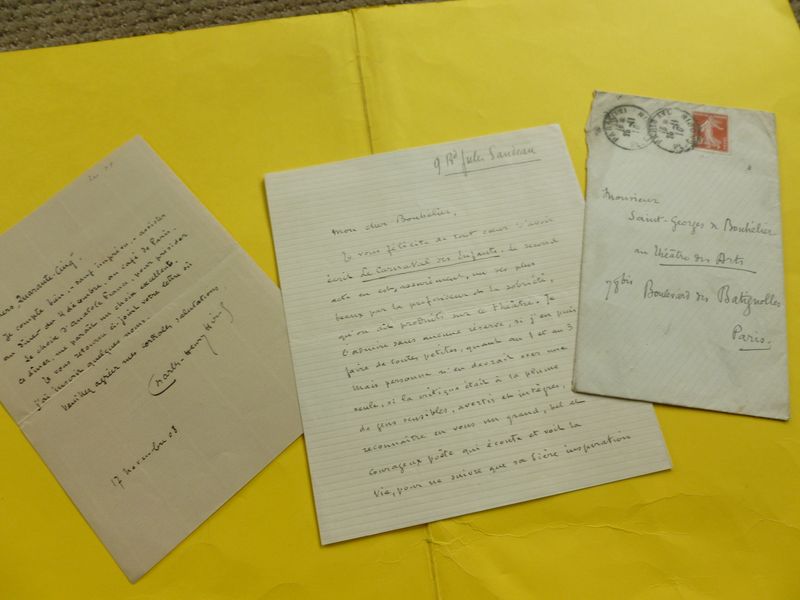 "Quarante-Cinq"
Je compte bien, sauf imprévu, assister
au dîner du 4 décembre, au café de Paris.
Le choix d'Anatole France, pour présider
ce dîner, me paraît un choix excellent.
Je vous retourne ci-joint votre lettre où
j'ai inscrit quelques noms.
Veuillez agréer mes cordiales salutations,
Charles-Henry Hirsch
17 novembre 08
9 Rd Jules Sandeau
Mon cher Bouhélier,
Je vous félicite de tout cœur d'avoir
écrit Le Carnaval des Enfants. Le second
acte en est, assurément, un des plus
beaux par la profondeur et la sobriété,
qu'on ait produits sur le théâtre. Je
l'admire sans aucune réserve, si j'en puis
faire de toutes petites, quant au 1 et au 3
mais personne n'en devrait oser une
seule, si la critique était à la plume
de gens sensibles, avertis et intègres,
reconnaître en vous un grand, bel et
courageux poète qui écoute et voit la
vie, pour ne suivre que sa fière inspiration
Monsieur
Saint-Georges de Bouhélier
au Théâtre des Arts
78bis Boulevard des Batignolles
Paris.